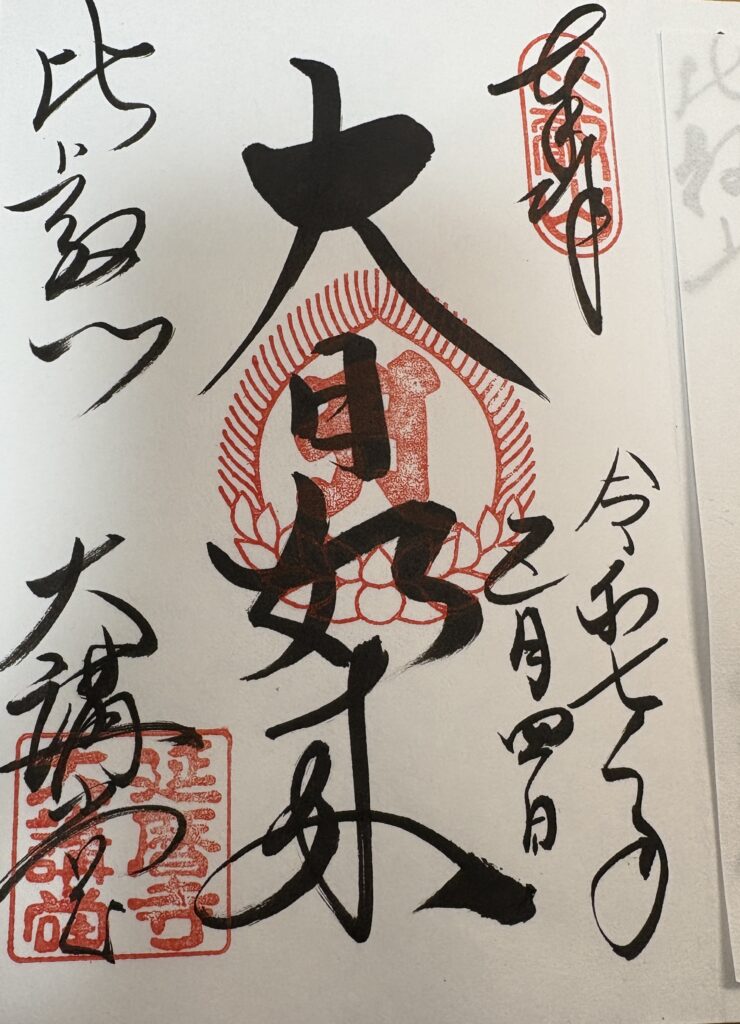 奉拝
令和七年
五月四日
大日如来
比叡山
大講堂
延暦寺
大講堂